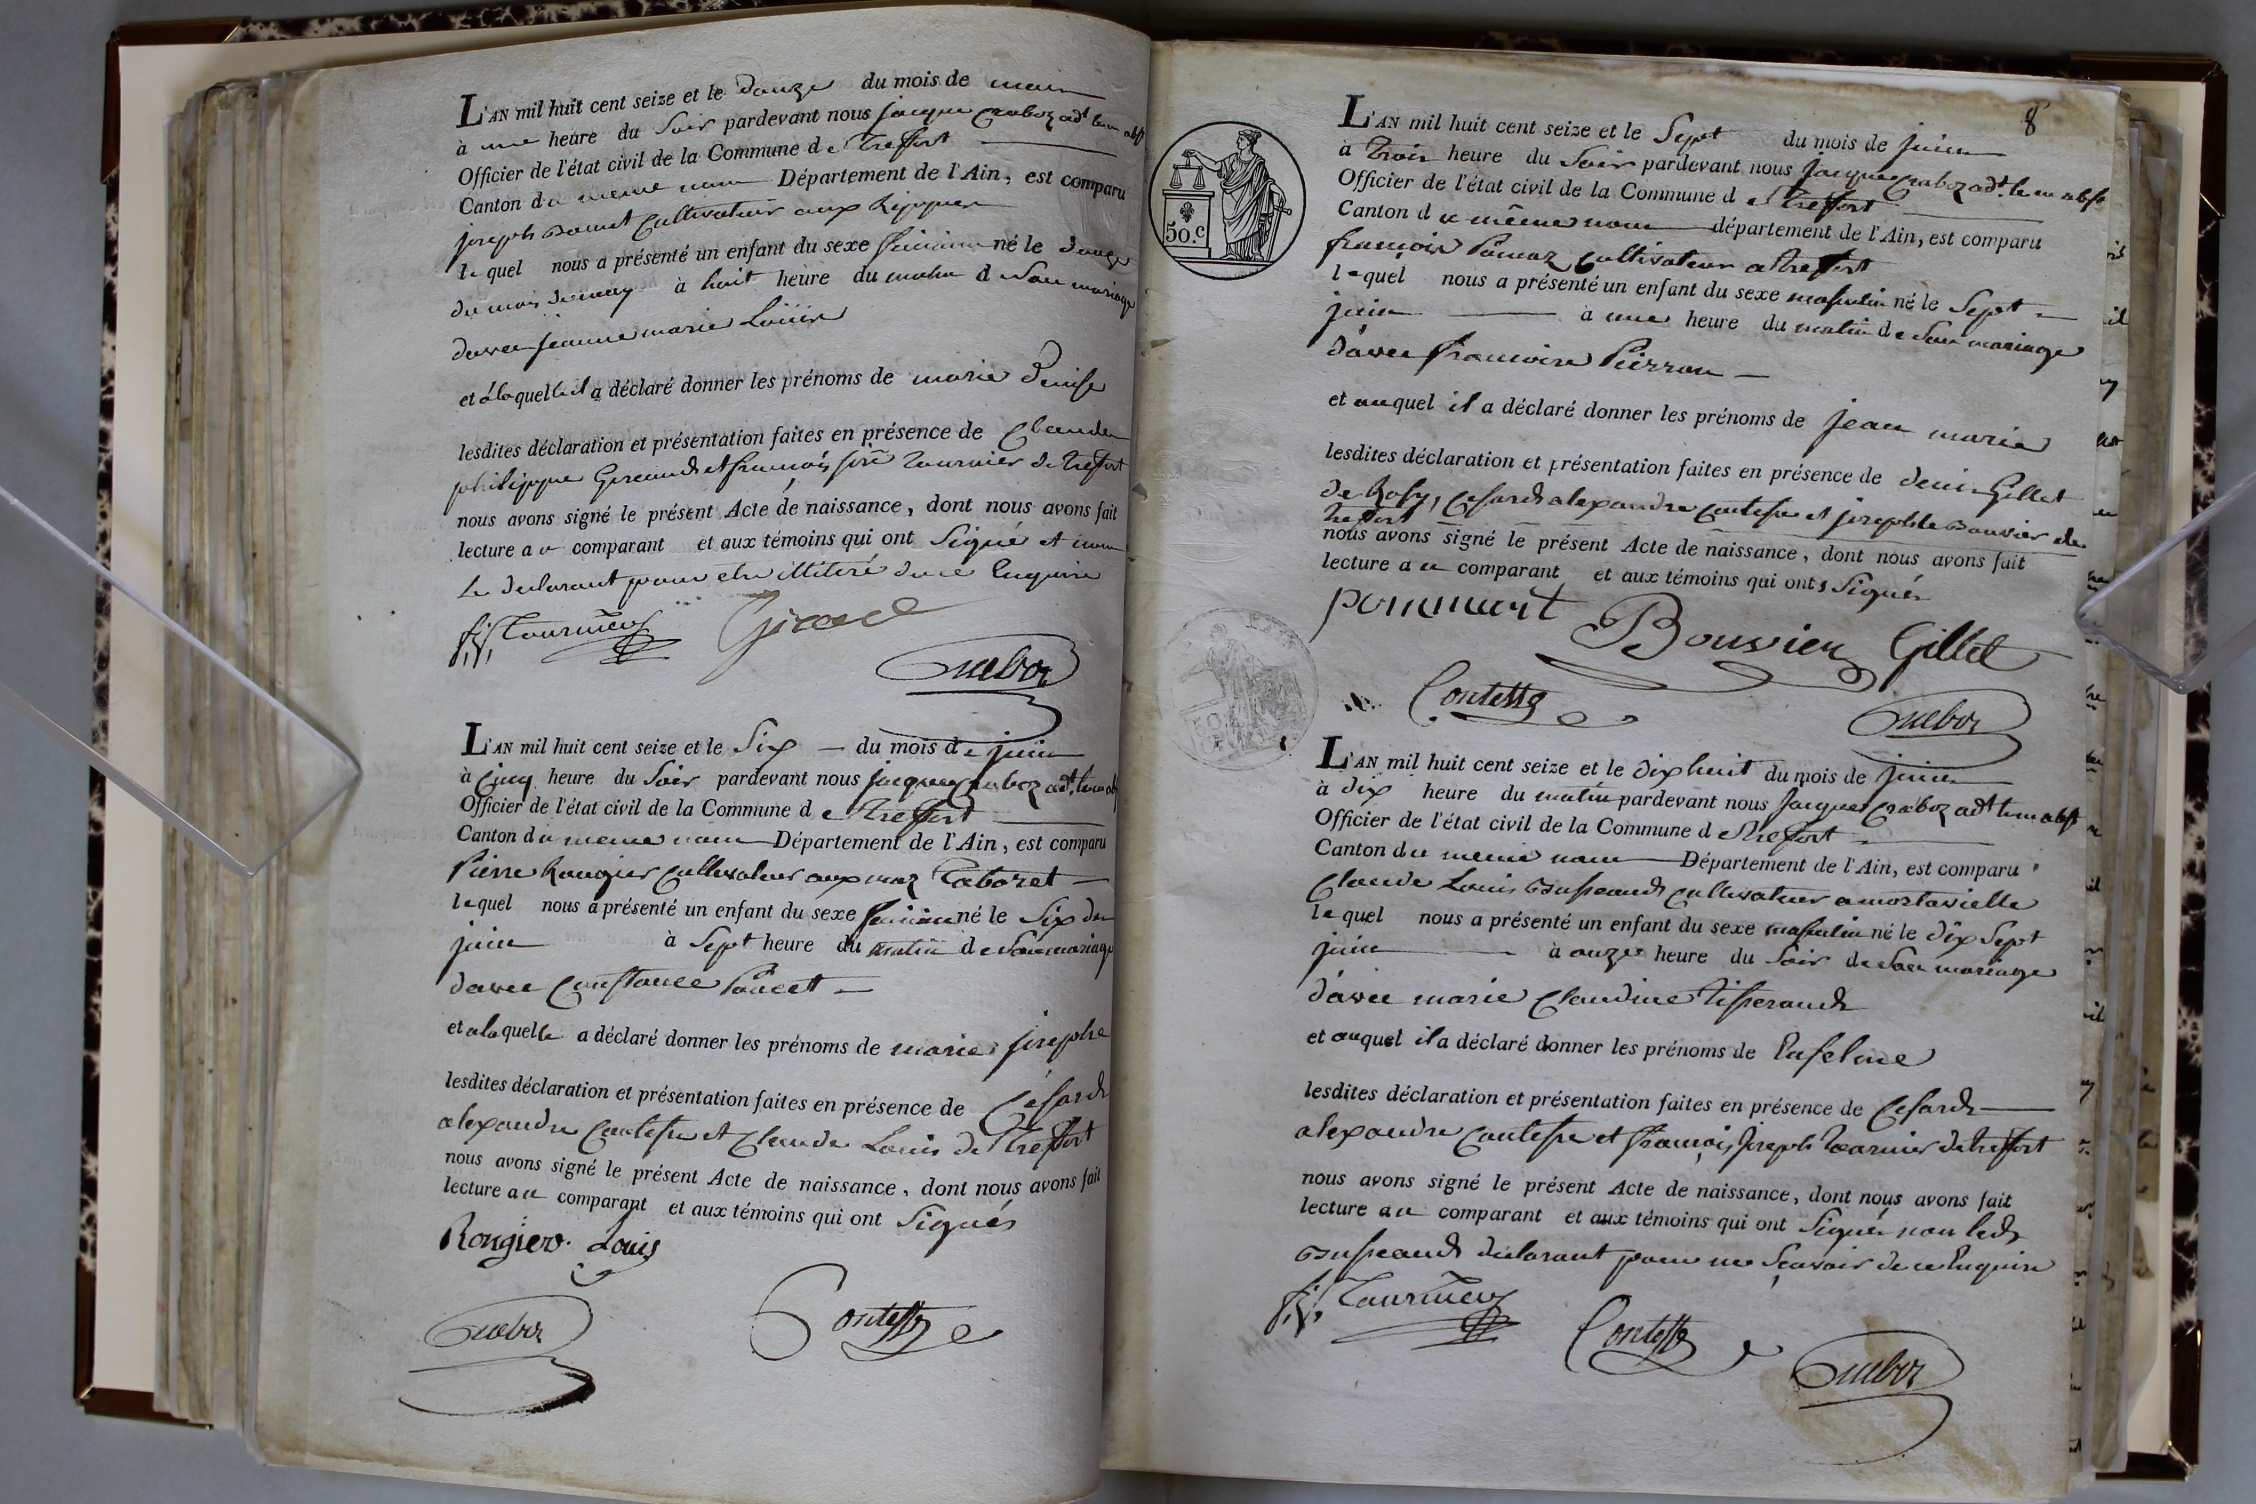 L'AN mil huit cent seize et le douze du mois de may
à une heure du Soir pardevant nous jacque Craboz adt le m abst
Officier de l'état civil de la Commune de Treffort
Canton du meme nom Département de l'Ain, est comparu
joseph cultivateur aux
lequel nous a présenté un enfant du sexe feminin né le douze
du mois de may à huit heure du matin de Son mariage
davec jeanne marie
et à laquelle il a déclaré donner les prénoms de marie Denise
lesdites déclaration et présentation faites en présence de Claude
philippe et francois jph Tournier de Treffort
nous avons signé le présent Acte de naissance, dont nous avons fait
lecture au comparant et aux témoins qui ont Signé et non
Le declarant pour etre illitéré de ce Enquire
f. j. Tournier
Craboz
L'AN mil huit cent seize et le Six du mois de juin
à Cinq heure du Soir pardevant nous jacque Craboz adt le m abst
Officier de l'état civil de la Commune de Treffort
Canton du meme nom Département de l'Ain, est comparu
Pierre Rougier Cultivateur aux maz Taboret
lequel nous a présenté un enfant du sexe feminin né le Six du
juin à Sept heure du matin de Son mariage
davec Constance Poncet
et a laquelle a déclaré donner les prénoms de marie josephe
lesdites déclaration et présentation faites en présence de Césard
alexandre Contesse et Claude Louis de Treffort
nous avons signé le présent Acte de naissance, dont nous avons fait
lecture au comparant et aux témoins qui ont Signés
Rougier Louis
Craboz Contesse
8
50.c
L'AN mil huit cent seize et le Sept du mois de juin
à Trois heure du Soir pardevant nous jacque Craboz adt le m abst
Officier de l'état civil de la Commune de Treffort
Canton du même nom département de l'Ain, est comparu
francois cultivateur a Treffort
lequel nous a présenté un enfant du sexe masculin né le Sept
juin à une heure du matin de Son mariage
d'avec francoise Pierron
et auquel il a déclaré donner les prénoms de jean marie
lesdites déclaration et présentation faites en présence de denis Gillet
de Rosy, Cesard alexandre Contesse et joseph Bouvier de
Treffort
nous avons signé le présent Acte de naissance, dont nous avons fait
lecture au comparant et aux témoins qui ont Signés
Bouvier Gillet
Contesse Craboz
L'AN mil huit cent seize et le dixhuit du mois de juin
à dix heure du matin pardevant nous jacque Craboz adt le m abst
Officier de l'état civil de la Commune de Treffort
Canton du meme nom Département de l'Ain, est comparu
Claude Louis cultivateur a montavielle
lequel nous a présenté un enfant du sexe masculin né le dix Sept
juin à onze heure du Soir de Son mariage
d'avec marie Claudine Tisserand
et auquel il a déclaré donner les prénoms de
lesdites déclaration et présentation faites en présence de Cesard
alexandre Contesse et francois joseph Tournier de Treffort
nous avons signé le présent Acte de naissance, dont nous avons fait
lecture au comparant et aux témoins qui ont Signés non led
declarant pour ne Scavoir de ce Enquire
f. j. Tournier Contesse Craboz